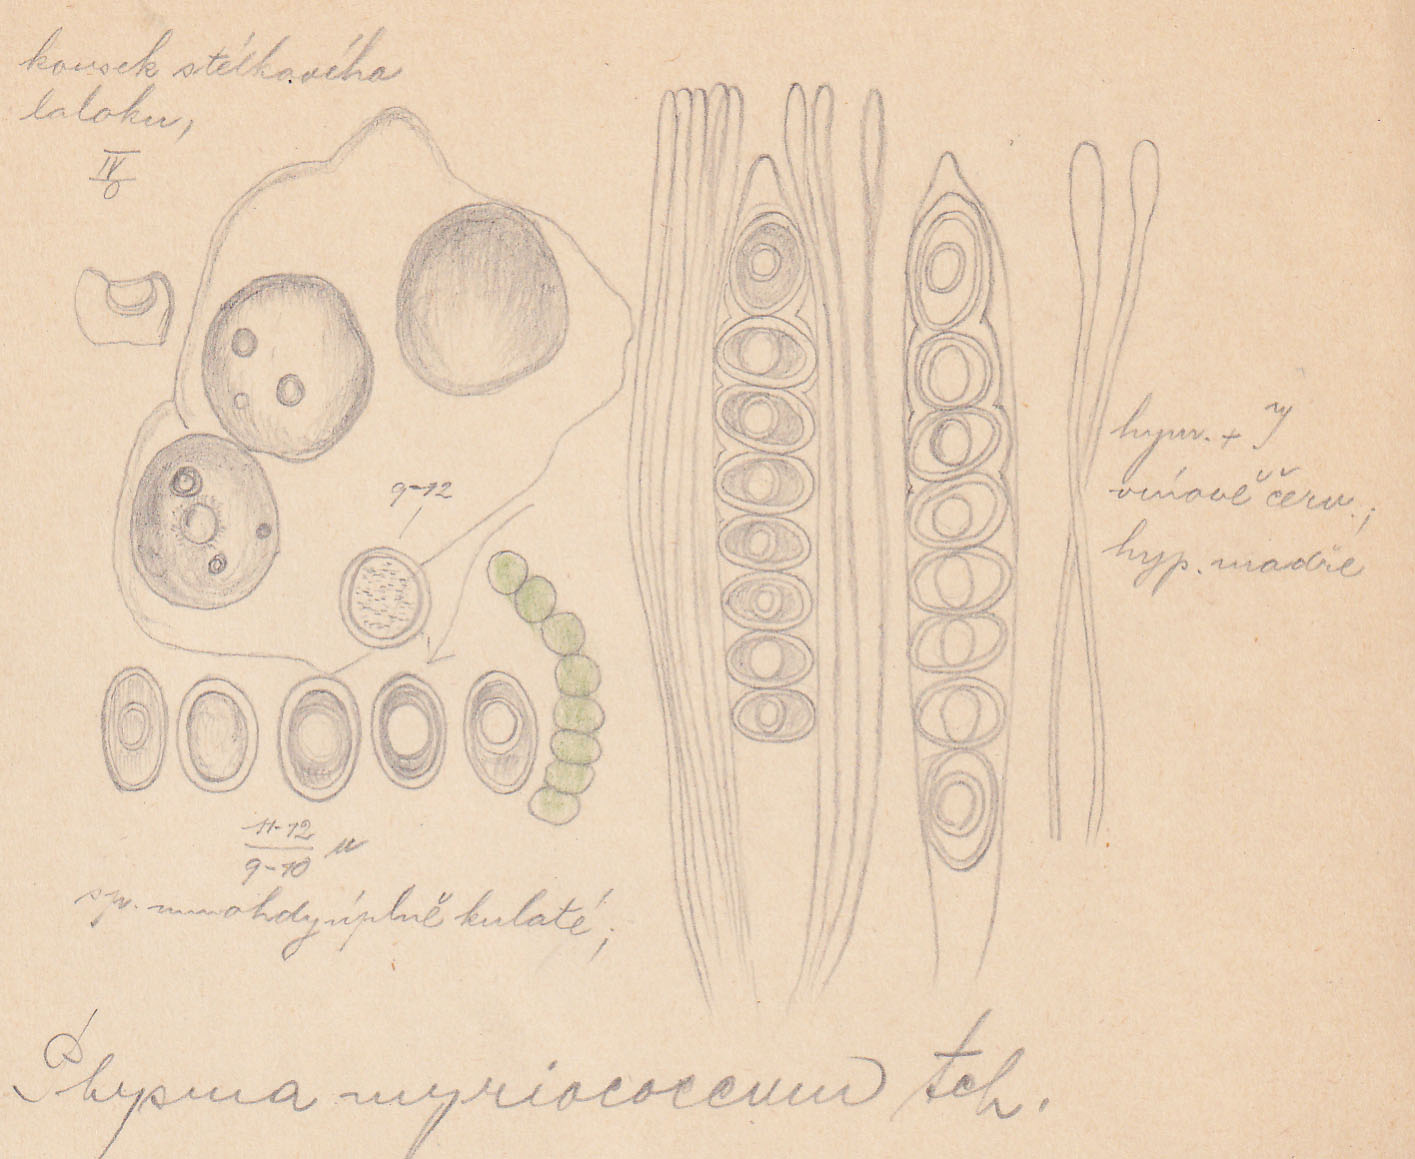 kousek stélkového
laloku,
IV
0
9-12
hym. + J
vínově červ.;
hyp. modře
11-12
9-10 µ
sp. mnohdy úplně kulaté;
Physma myriococcum Ach.